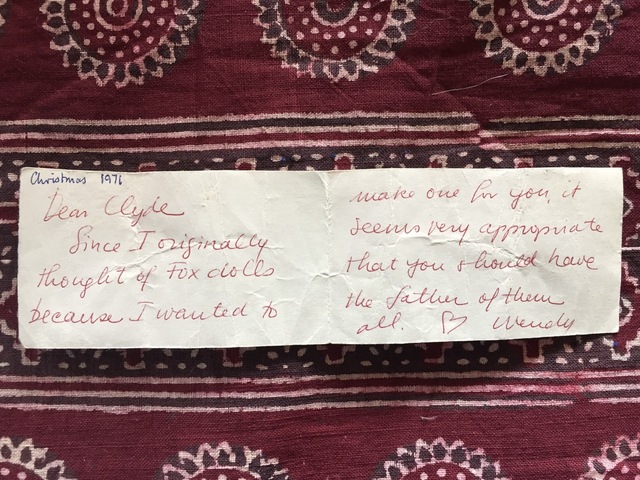 Christmas 1976
Dear Clyde
Since I originally
thought of Fox dolls
because I wanted to
make one for you, it
seems very appropriate
that you should have
the father of them
all. ♡ Wendy